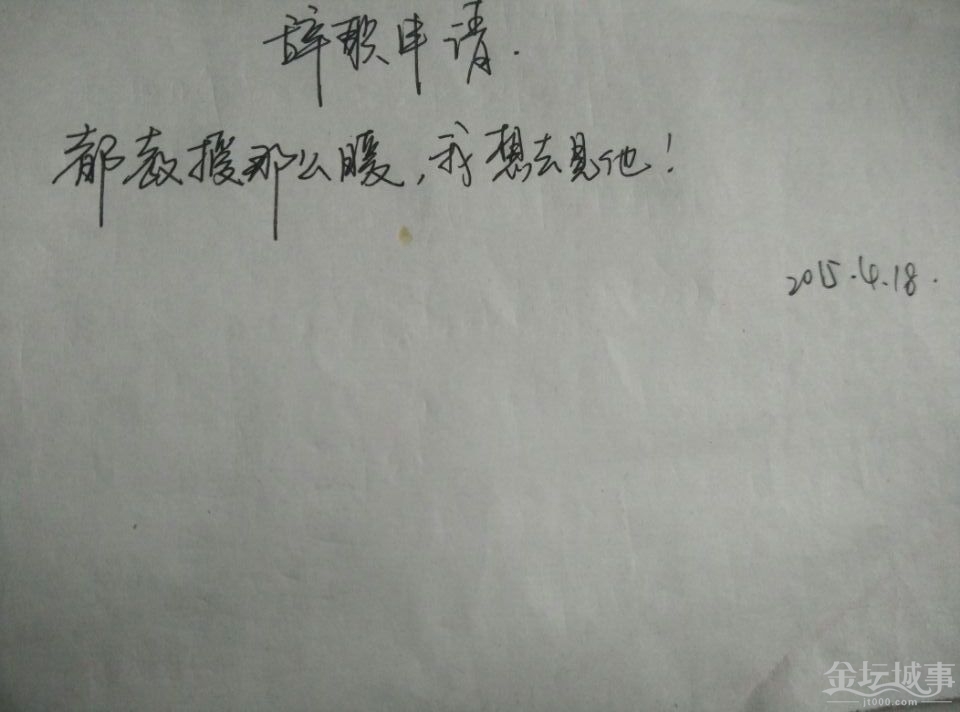 辞职申请.
都教授那么暖,我想去见他!
2015.4.18.
金坛城事
jt000.com